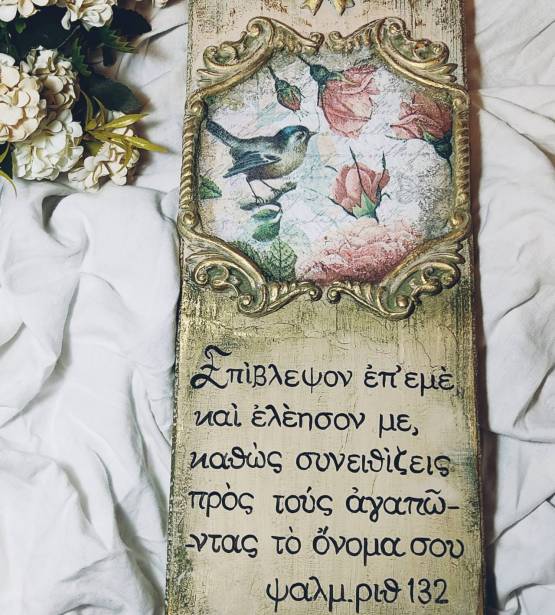 Ἐπὶβλεψον ἐπ'ἐμὲ
καὶ ἐλὲησον με,
καθὼς συνειθὶζεις
πρὸς τούς ἀγαπῶ-
-ντας τὸ ὄνομα σου
ψαλμ.ριθ 132